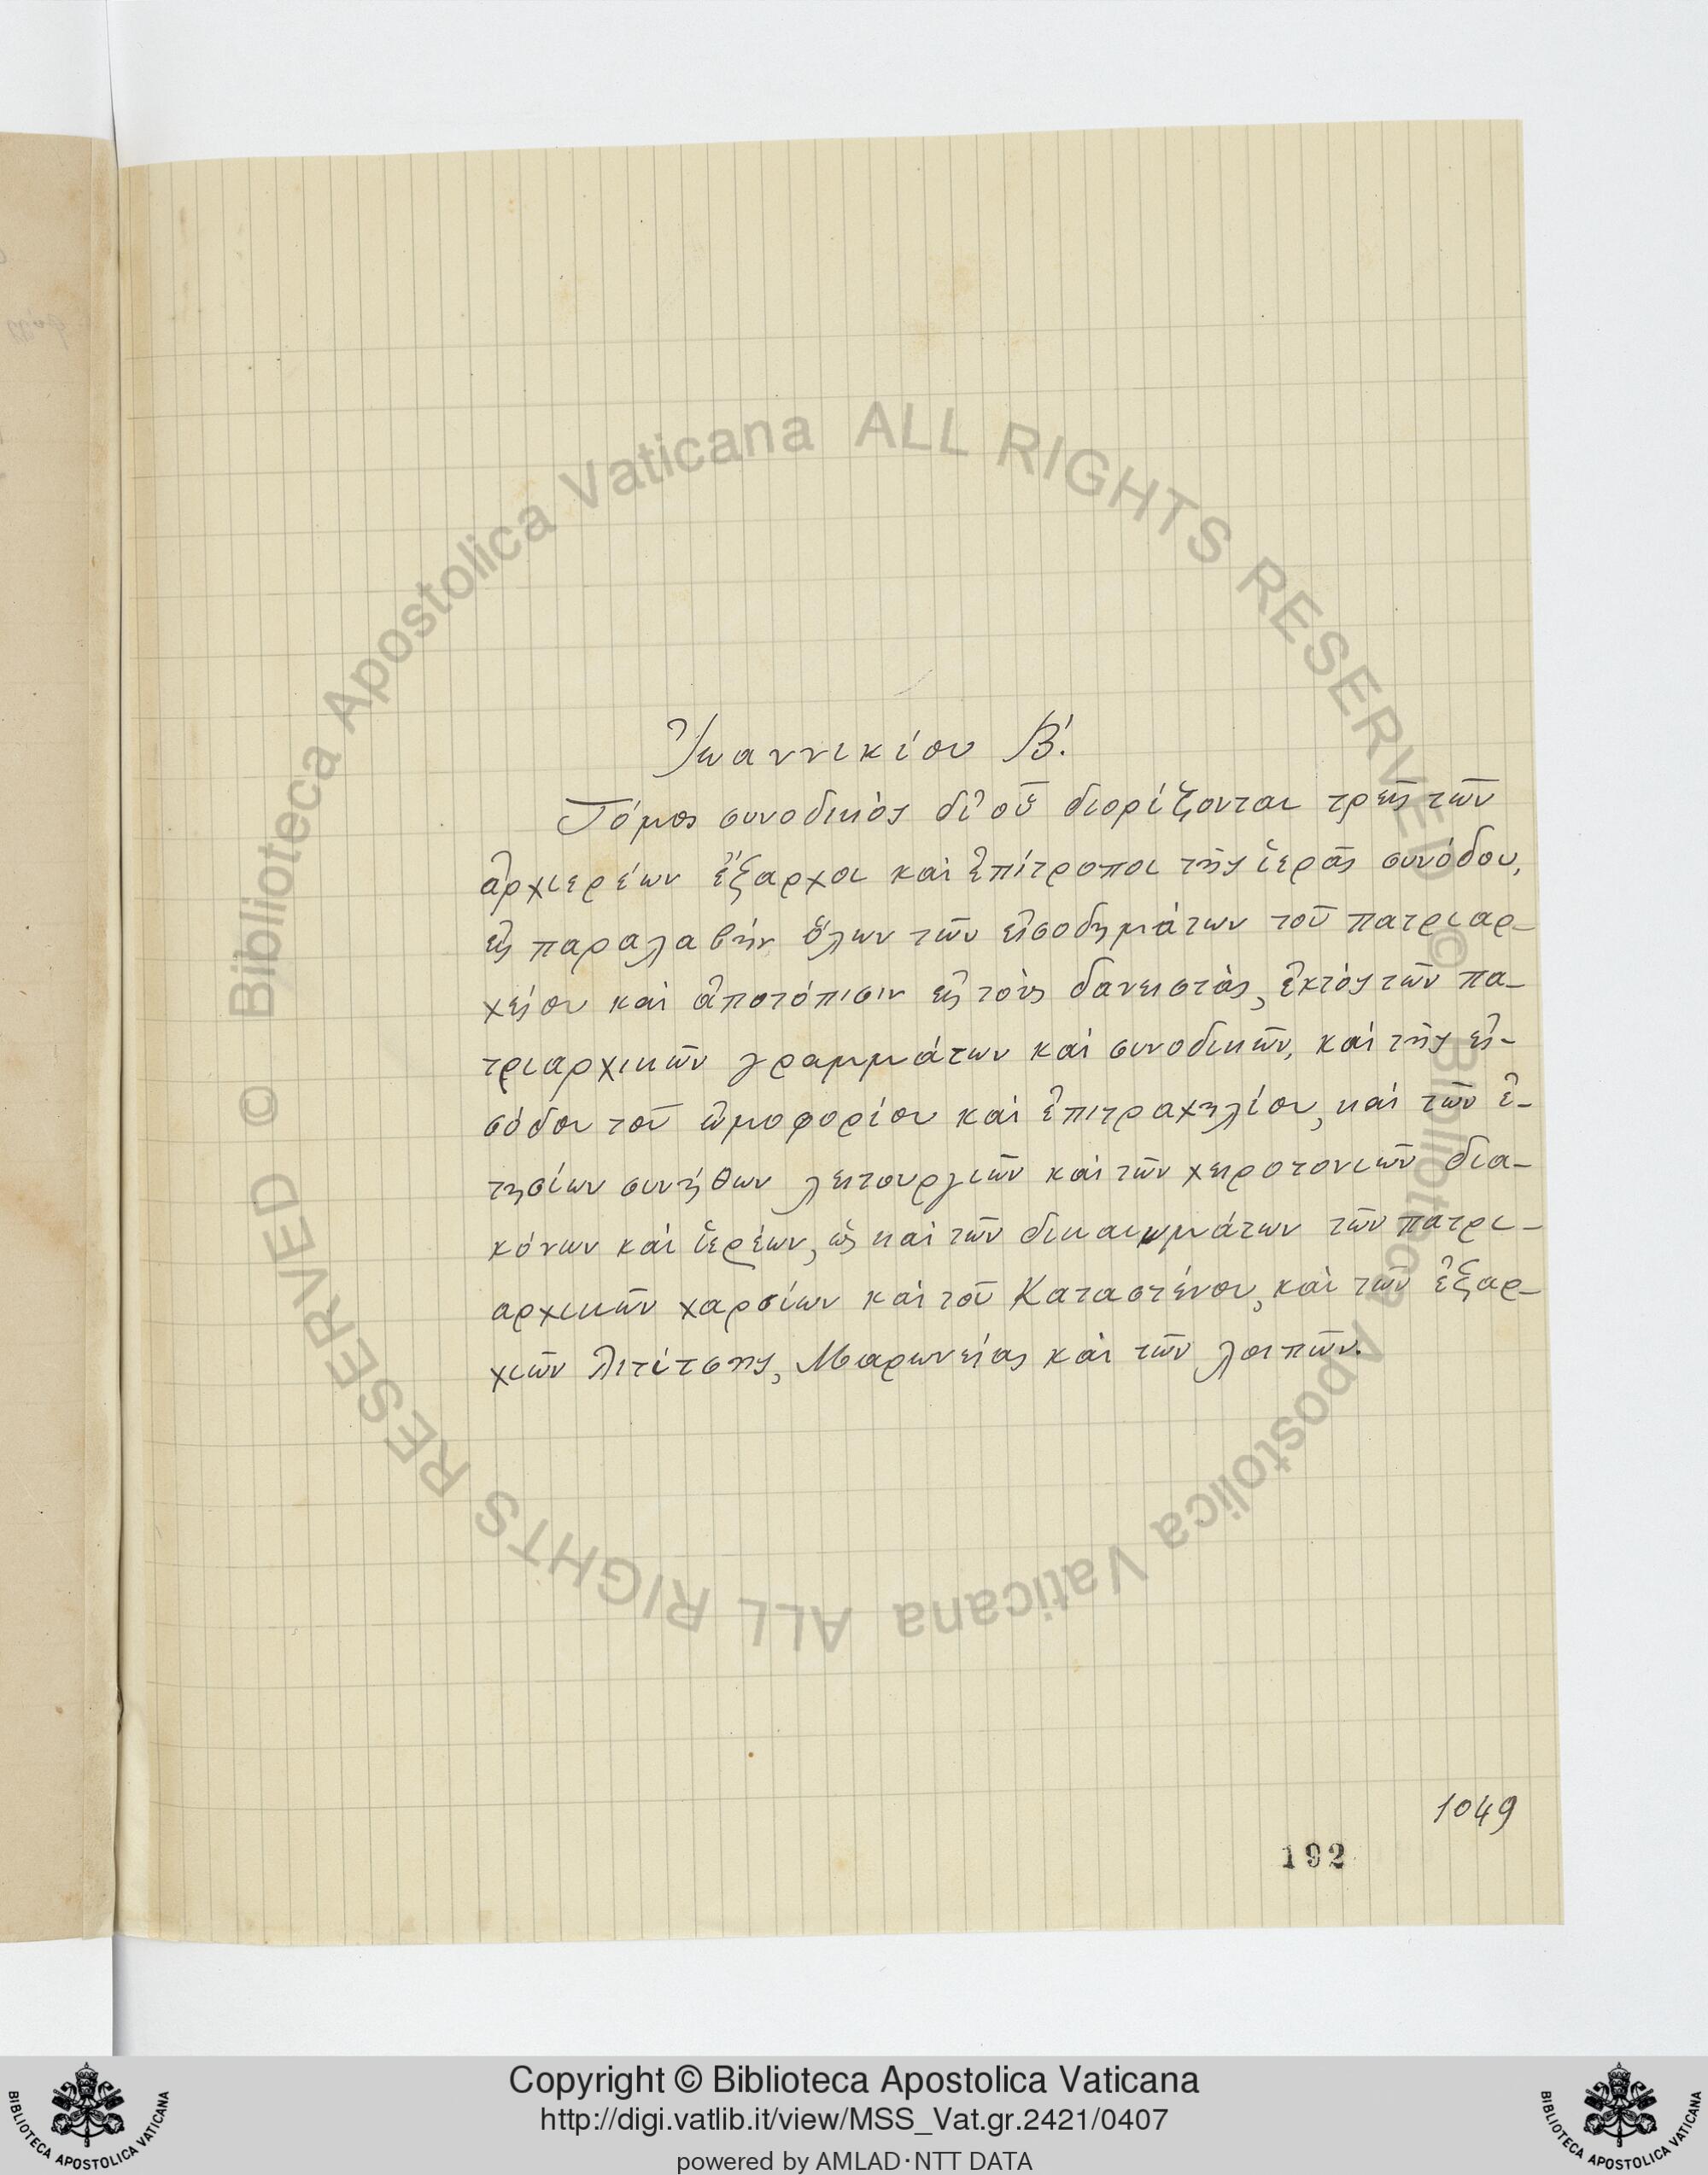 Ἰωαννικίου Β΄.
Τόμος συνοδικὸς δι' οὗ διορίζονται τρεῖς τῶν
ἀρχιερέων ἔξαρχοι καὶ ἐπίτροποι τῆς ἱερᾶς συνόδου,
εἰς παραλαβὴν ὅλων τῶν εἰσοδημάτων τοῦ πατριαρ-
χείου καὶ ἀποτόπισιν εἰς τοὺς δανειστάς, ἐκτὸς τῶν πα-
τριαρχικῶν γραμμάτων καὶ συνοδικῶν, καὶ τῆς εἰ-
σόδου τοῦ ὠμοφορίου καὶ ἐπιτραχηλίου, καὶ τῶν ἐ-
τησίων συνήθων λειτουργιῶν καὶ τῶν χειροτονιῶν δια-
κόνων καὶ ἱερέων, ὡς καὶ τῶν δικαιωμάτων τῶν πατρι-
αρχικῶν χαρσίων καὶ τοῦ Καταστένου, καὶ τῶν ἐξαρ-
χιῶν Λιτίτσης, Μαρωνείας καὶ τῶν λοιπῶν.
1049
192
© Biblioteca Apostolica Vaticana ALL RIGHTS RESERVED
© Biblioteca Apostolica Vaticana ALL RIGHTS RESERVED
Copyright © Biblioteca Apostolica Vaticana
http://digi.vatlib.it/view/MSS_Vat.gr.2421/0407
powered by AMLAD·NTT DATA
BIBLIOTECA APOSTOLICA VATICANA
BIBLIOTECA APOSTOLICA VATICANA